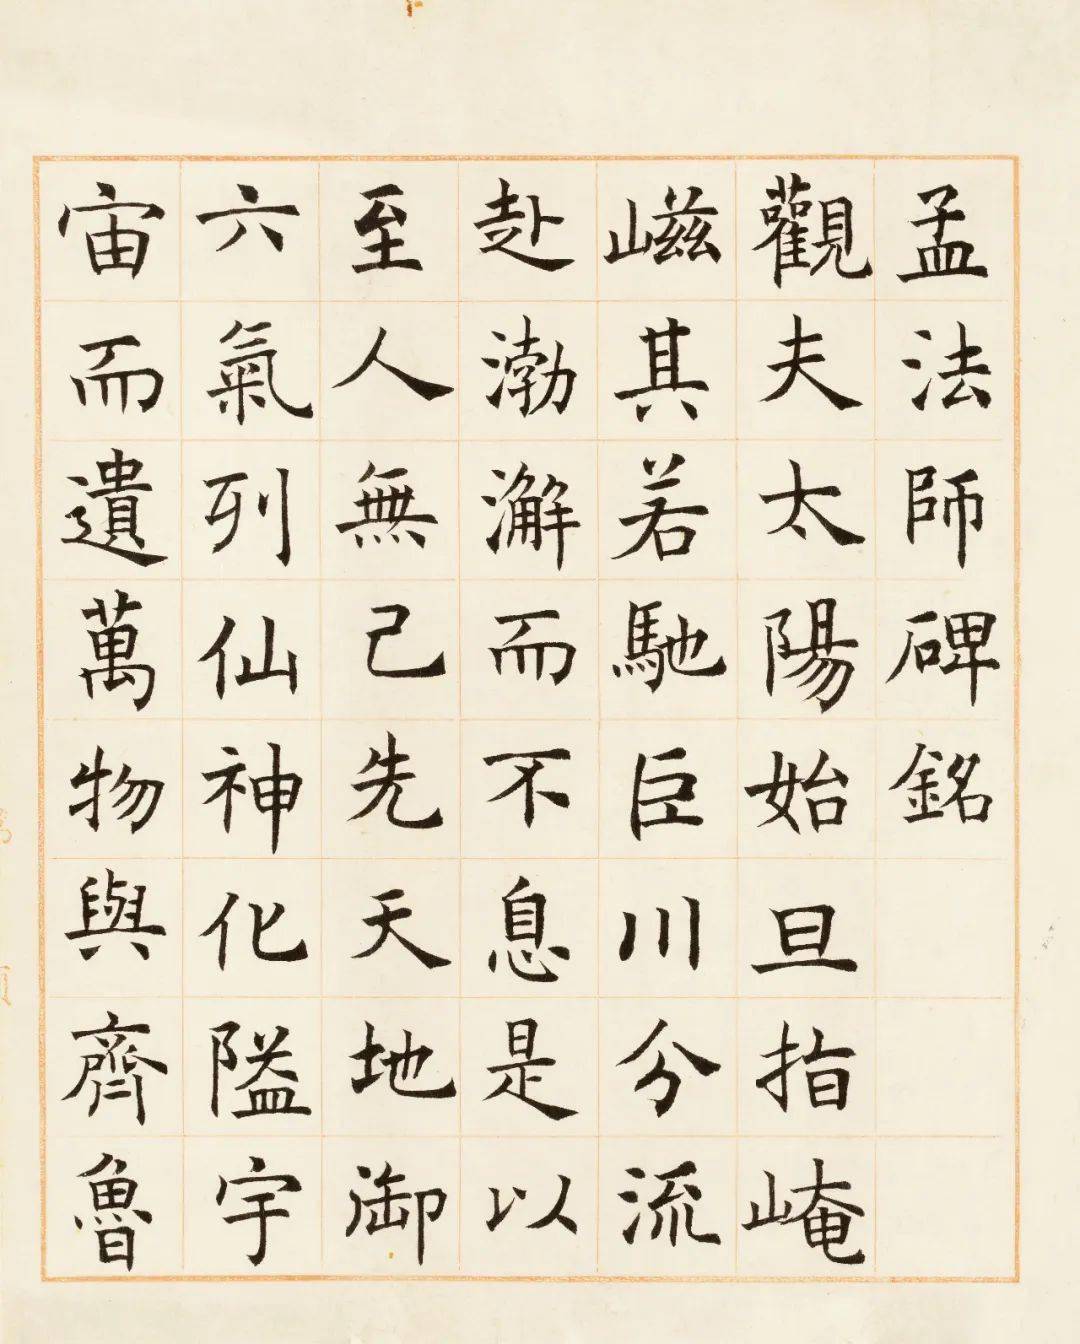 孟法師碑銘
觀夫太陽始旦指崦
嵫其若馳巨川分流
赴渤澥而不息是以
至人無己先天地御
六氣列仙神化隘宇
宙而遺萬物與齊魯